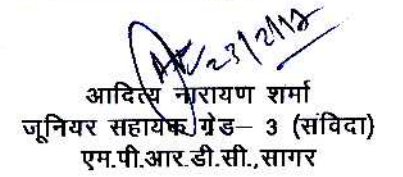 23/2/12
आदित्य नारायण शर्मा
जूनियर सहायक ग्रेड– 3 (संविदा)
एम.पी.आर.डी.सी.,सागर